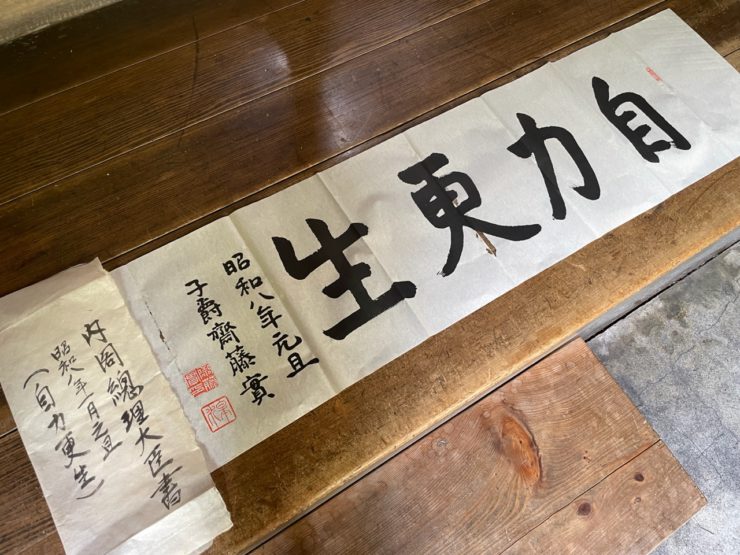 自力更生
昭和八年元旦
子爵齋藤實
内閣總理大臣書
昭和八年一月元旦
(自力更生)